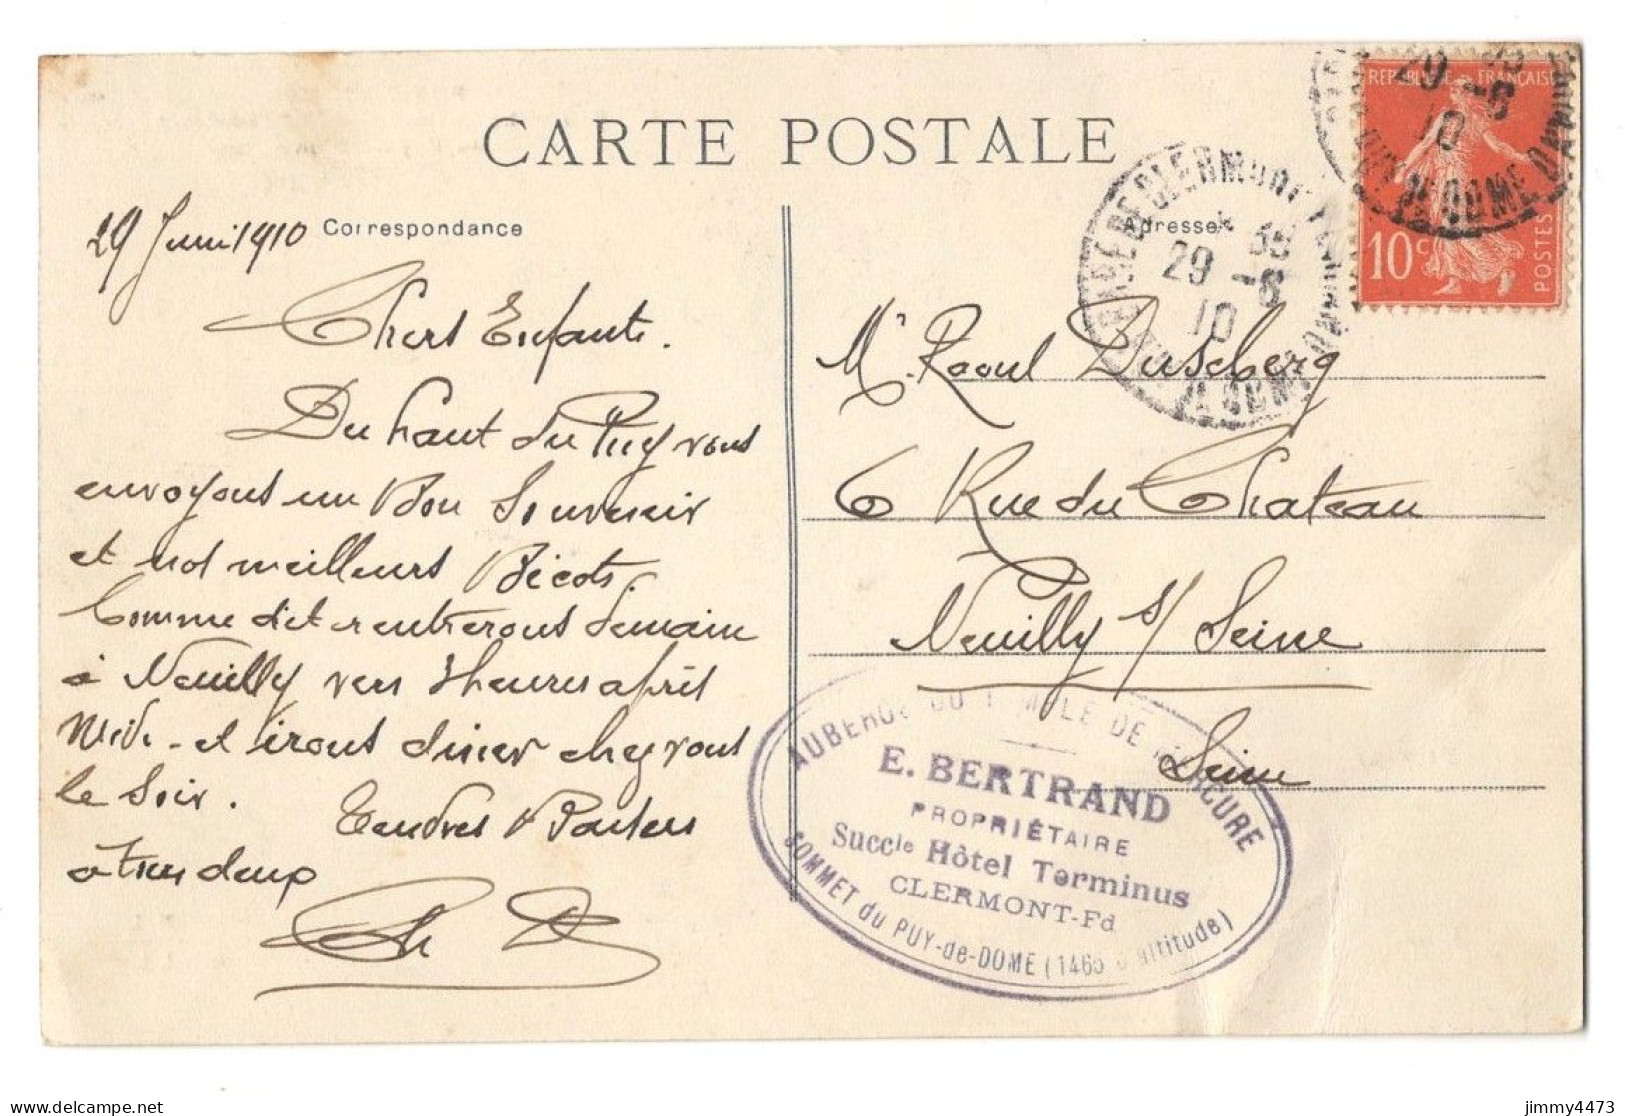 CARTE POSTALE
Correspondance
Adresse
29 Juin 1910
Chers Enfants.
Du haut du Puy vous
envoyons un Bon Souvenir
et nos meilleurs Bécots.
Comme dit rentrerons demain
à Neuilly vers 3 heures après
Midi - et irons diner chez vous
le Soir. Tendres Baisers
à tous deux
Ch D
Mr. Raoul Duseberg
6 Rue du Chateau
Neuilly s/ Seine
Seine
REPUBLIQUE FRANÇAISE
10c
POSTES
29 -6
10
GARE DE CLERMONT FERRAND
29 -6
10
AUBERGE DU TEMPLE DE MERCURE
E. BERTRAND
PROPRIÉTAIRE
Succle Hôtel Terminus
CLERMONT-Fd
SOMMET du PUY-de-DOME (1465 d'altitude)
jimmy4473